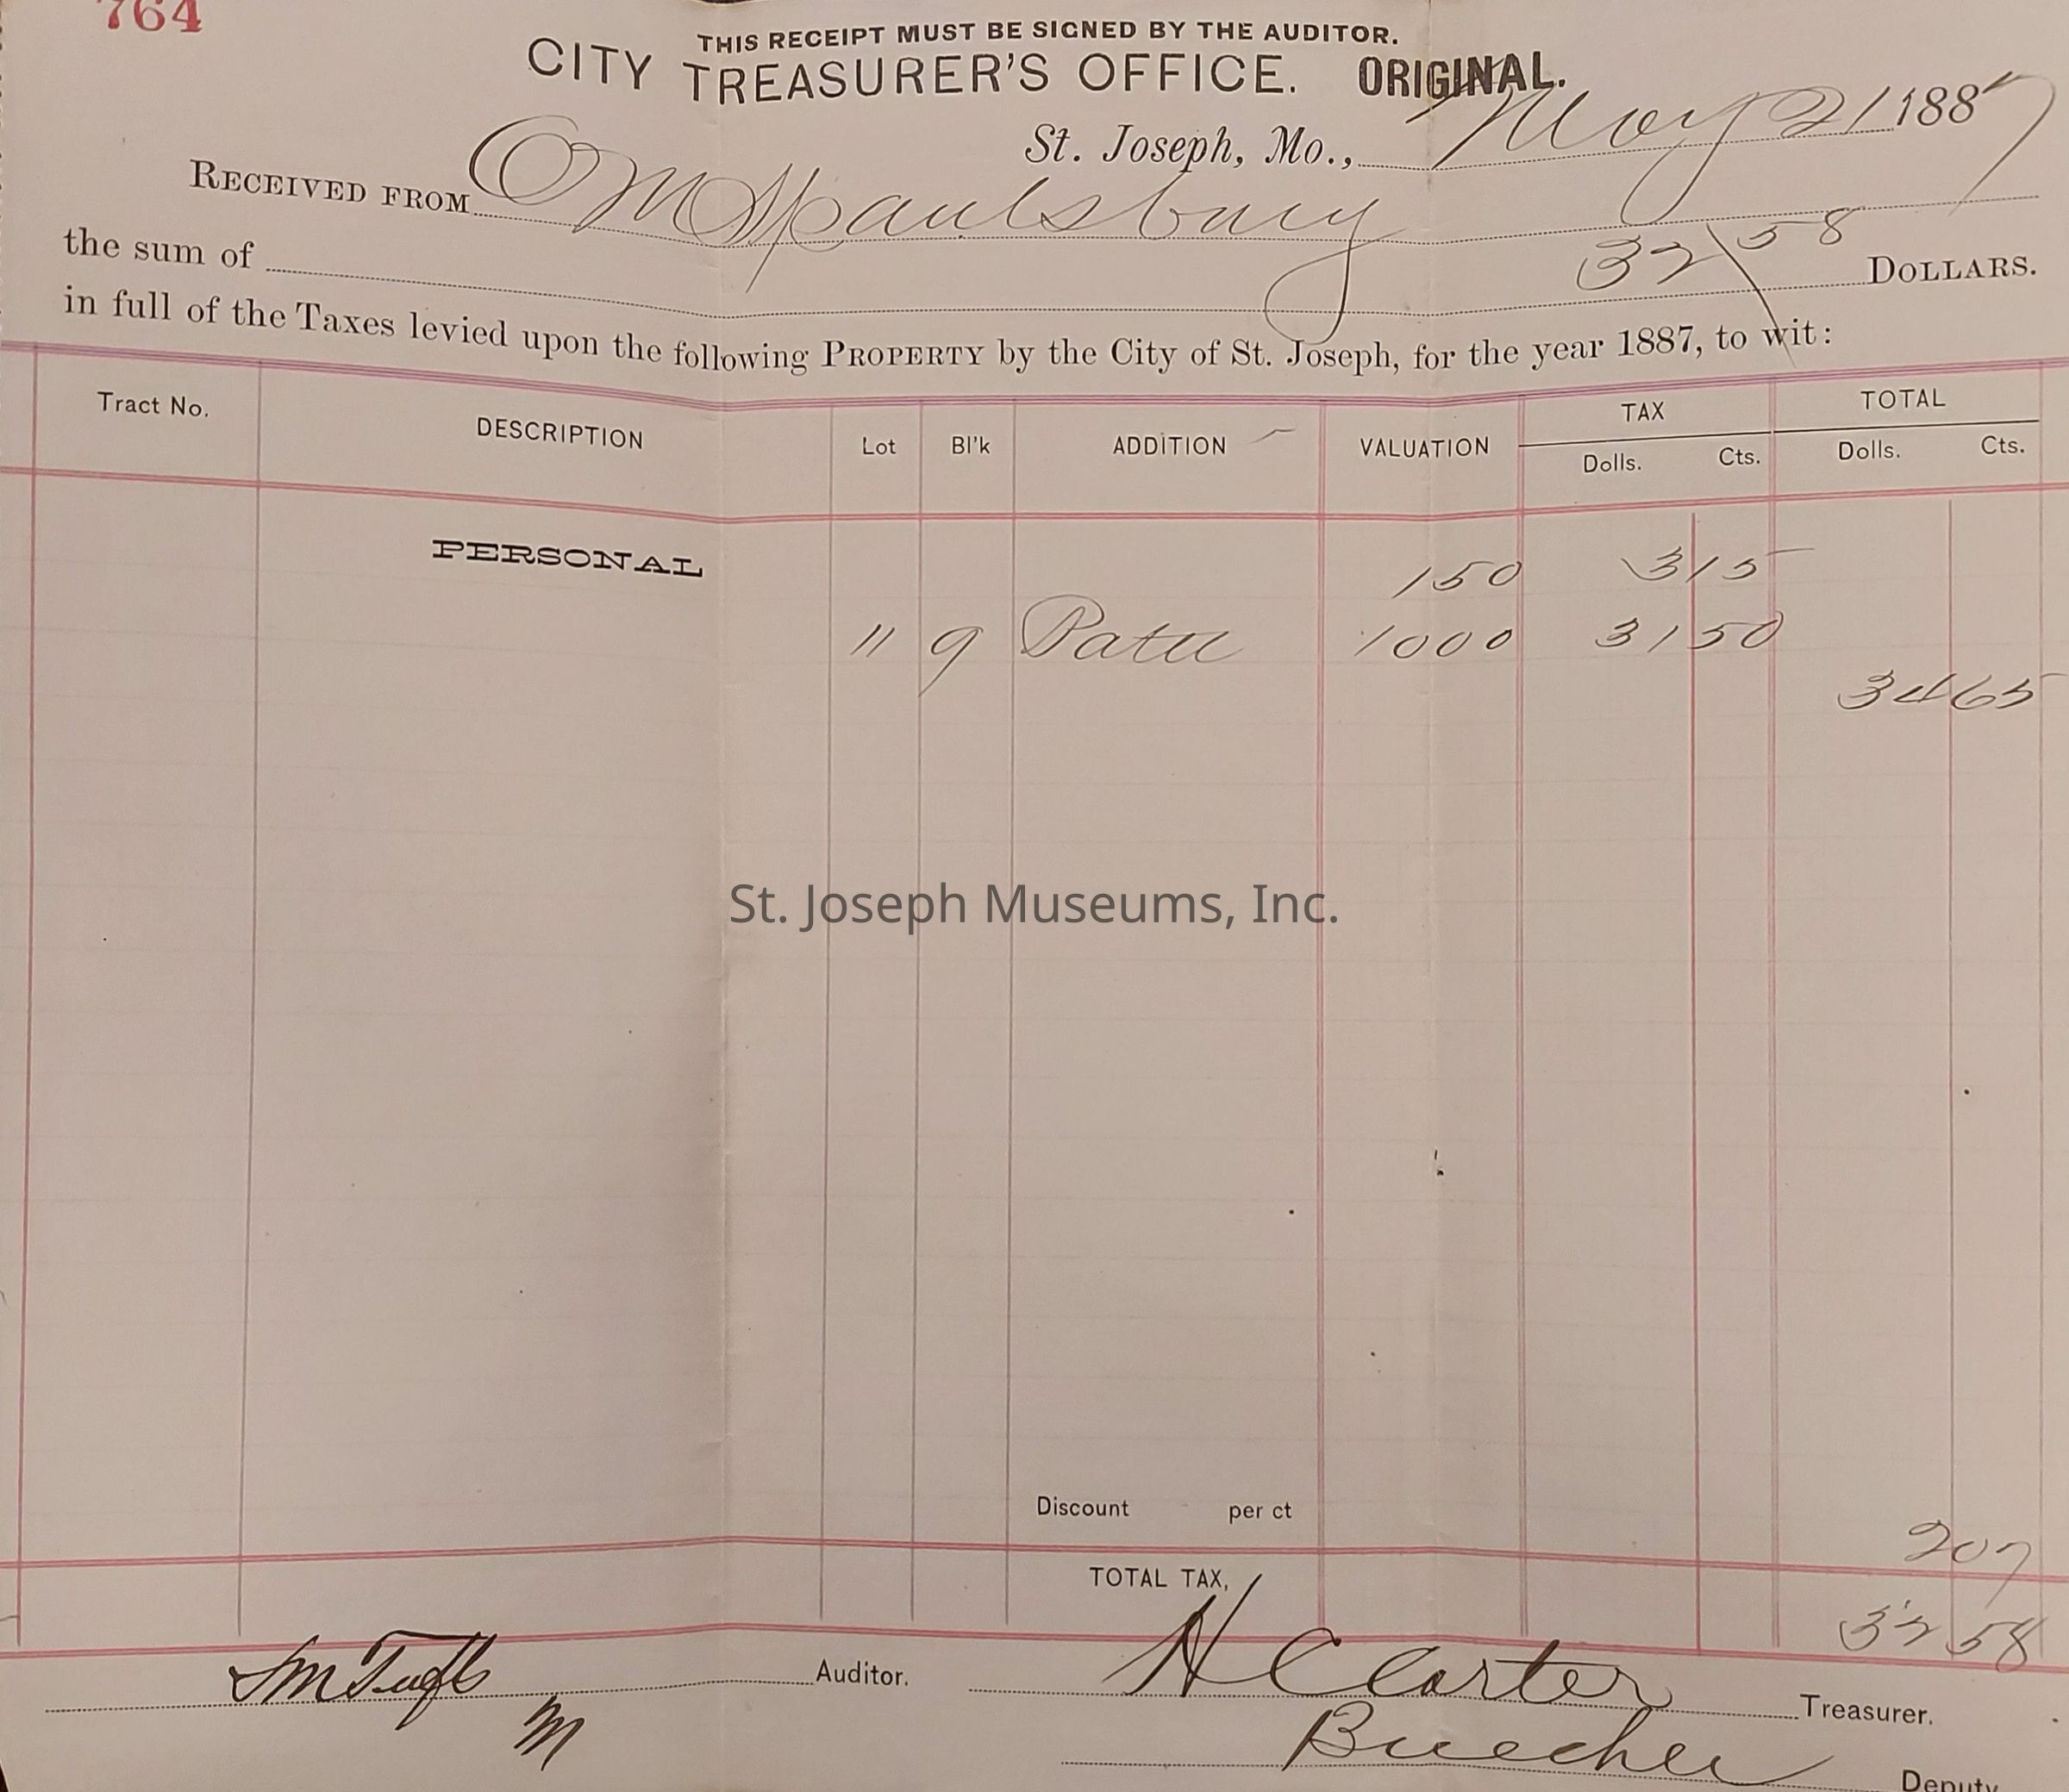 764
THIS RECEIPT MUST BE SIGNED BY THE AUDITOR.
CITY TREASURER'S OFFICE. ORIGINAL.
St. Joseph, Mo., May 21 1887
RECEIVED FROM O M Spaulsbury
the sum of 32 58 DOLLARS.
in full of the Taxes levied upon the following PROPERTY by the City of St. Joseph, for the year 1887, to wit:
Tract No. DESCRIPTION Lot Bl'k ADDITION VALUATION TAX TOTAL
Dolls. Cts. Dolls. Cts.
PERSONAL 150 3 15
11 9 Patee 1000 31 50
34 65
St. Joseph Museums, Inc.
Discount per ct 2 07
TOTAL TAX, 32 58
Auditor. H C Carter Treasurer.
Deputy